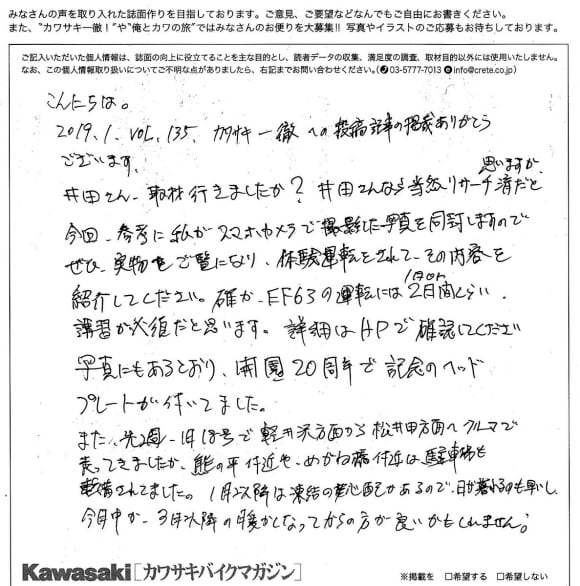 みなさんの声を取り入れた誌面作りを目指しております。ご意見、ご要望などなんでもご自由にお書きください。
また、"カワサキ一徹!"や"俺とカワの旅"ではみなさんのお便りを大募集!! 写真やイラストのご応募もお待ちしております。
ご記入いただいた個人情報は、誌面の向上に役立てることを主な目的とし、読者データの収集、満足度の調査、取材目的以外には使用いたしません。
なお、この個人情報取り扱いについてご不明な点がありましたら、右記までお問い合わせください。(☎03-5777-7013 ●info@crete.co.jp)
こんにちは。
2019.1. VOL.135. カワサキ一徹への投稿記事の掲載ありがとう
ございます。
井田さん、取材行きましたか? 井田さんなら当然リサーチ済だと
思いますが、
今回、参考に私がスマホカメラで撮影した写真を同封しますので
ぜひ、実物をご覧になり、体験運転をされて、その内容を
紹介してください。確か、EF63の運転には2日間くらい、
1日or
講習が必須だと思います。詳細はHPで確認してください
写真にもあるとおり、開園20周年で記念のヘッド
プレートが付いてました。
また、先週、旧18号で軽井沢方面から松井田方面へクルマで
走ってきましたが、熊の平付近や、めがね橋付近は駐車場も
整備されてました。1月以降は凍結の心配があるので、日が暮れるのも早いし、
今月中か、3月以降の暖かくなってからの方が良いかもしれません。
Kawasaki[カワサキバイクマガジン]
※掲載を □希望する □希望しない